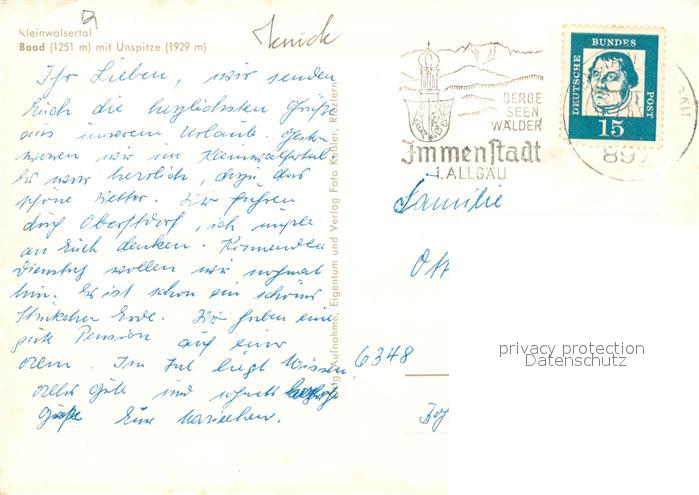 Kleinwalsertal
Baad (1251 m) mit Unspitze (1929 m)
Ihr Lieben, wir senden
Euch die herzlichsten Grüße
aus unserem Urlaub. Gestern
waren wir im Kleinwalsertal
Es war herrlich, dazu das
schöne Wetter. Wir fuhren
durch Oberstdorf, ich mußte
an Euch denken. Kommenden
Dienstag wollen wir nochmal
hin. Es ist schon ein schönes
Stückchen Erde. Wir haben eine
gute Pension auf einer
Im Tal liegt Missen
alles Gute und
Grüße Eure Mariechen.
Orig.-Aufnahme, Eigentum und Verlag Foto Keßler,
BERGE
SEEN
WÄLDER
Immenstadt
i. ALLGÄU
DEUTSCHE
BUNDES
POST
15
897
Familie
Ott
6348
privacy protection
Datenschutz